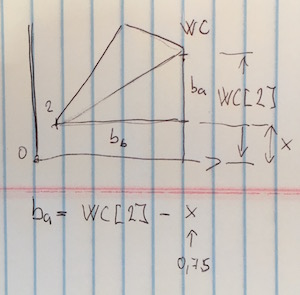 WC
2
ba
WC[2]
bb
x
0
ba = WC[2] - x
0,75